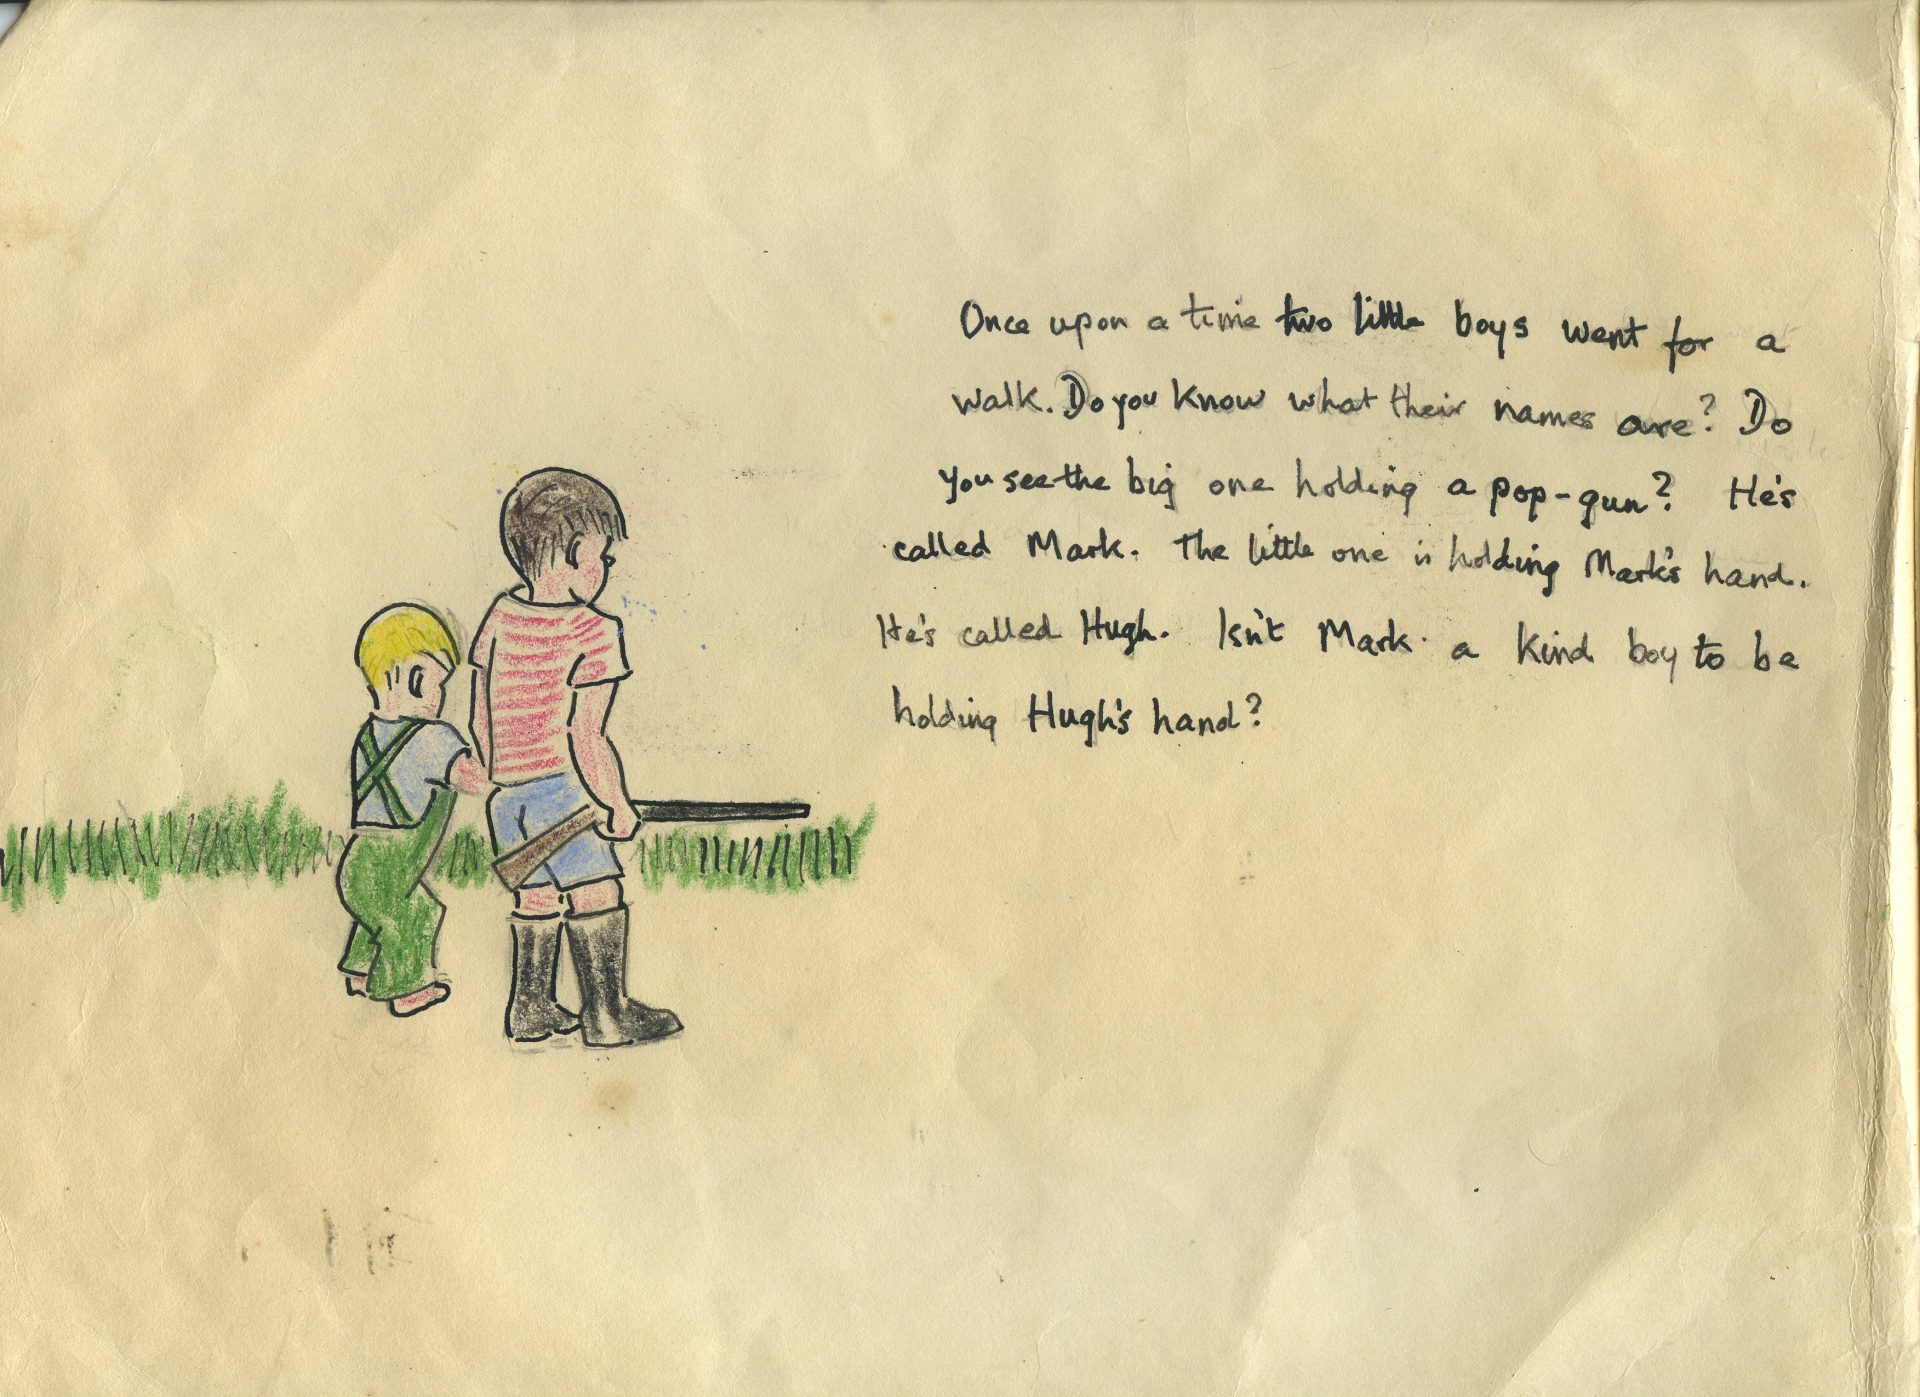 Once upon a time two little boys went for a
walk. Do you know what their names are? Do
you see the big one holding a pop-gun? He's
called Mark. The little one is holding Mark's hand.
He's called Hugh. Isn't Mark a kind boy to be
holding Hugh's hand?